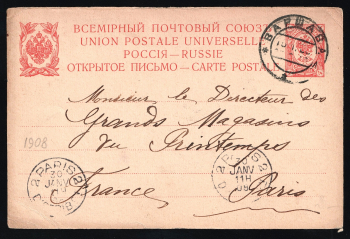 ВСЕМІРНЫЙ ПОЧТОВЫЙ СОЮЗЪ
UNION POSTALE UNIVERSELLE
РОССІЯ—RUSSIE
ОТКРЫТОЕ ПИСЬМО—CARTE POSTALE
ВАРШАВА
Monsieur le Directeur des
Grands Magasins
du Printemps
1908
France
Paris
PARIS
JANV
JANV
11H
08